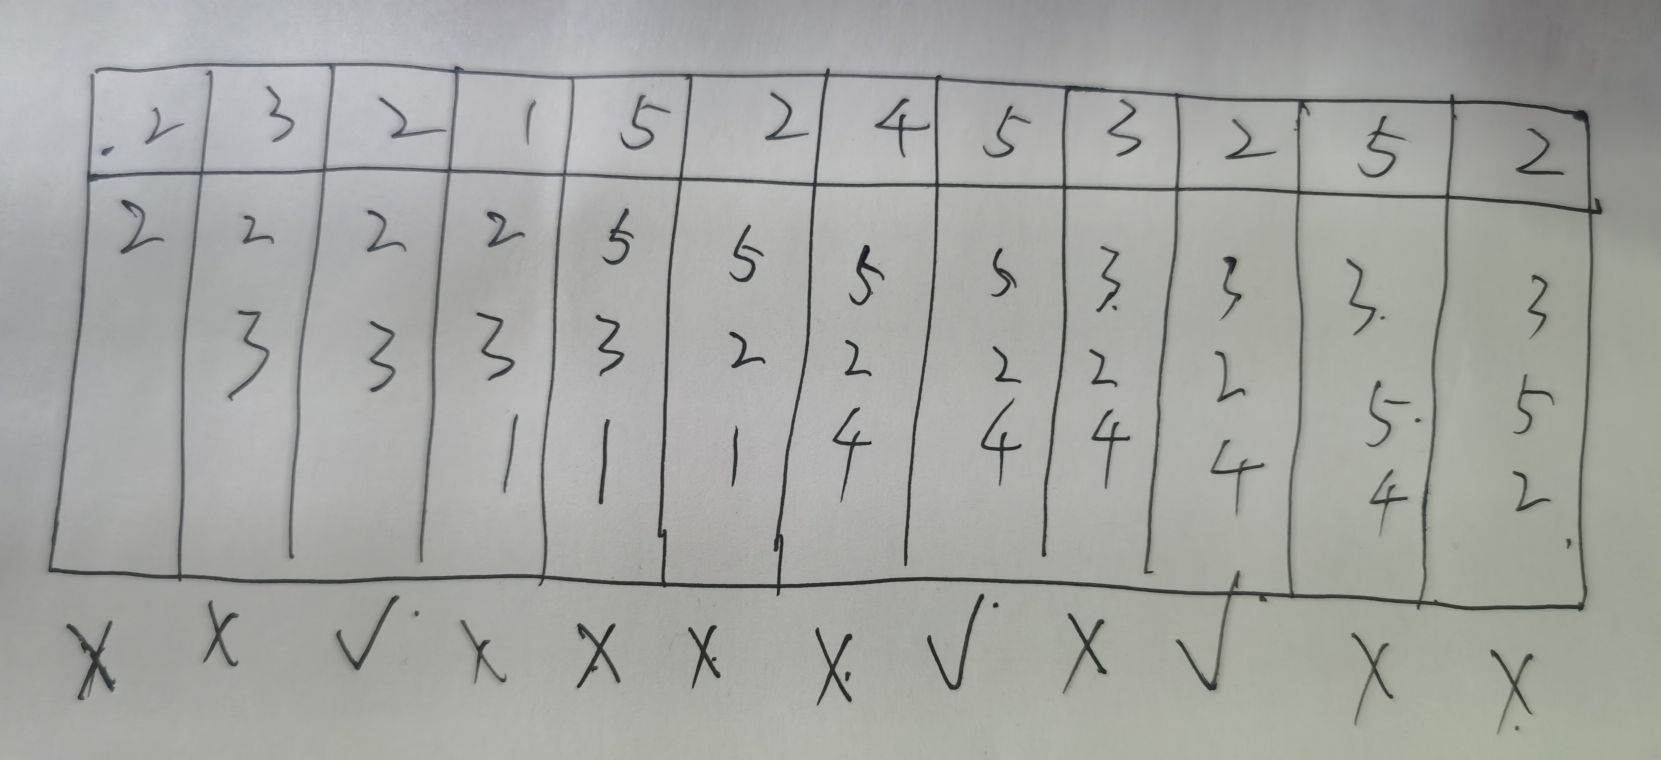 2 3 2 1 5 2 4 5 3 2 5 2
2 2 2 2 5 5 5 5 3 3 3 3
3 3 3 3 2 2 2 2 2 5 5
1 1 1 4 4 4 4 4 2
X X √ X X X X √ X √ X X